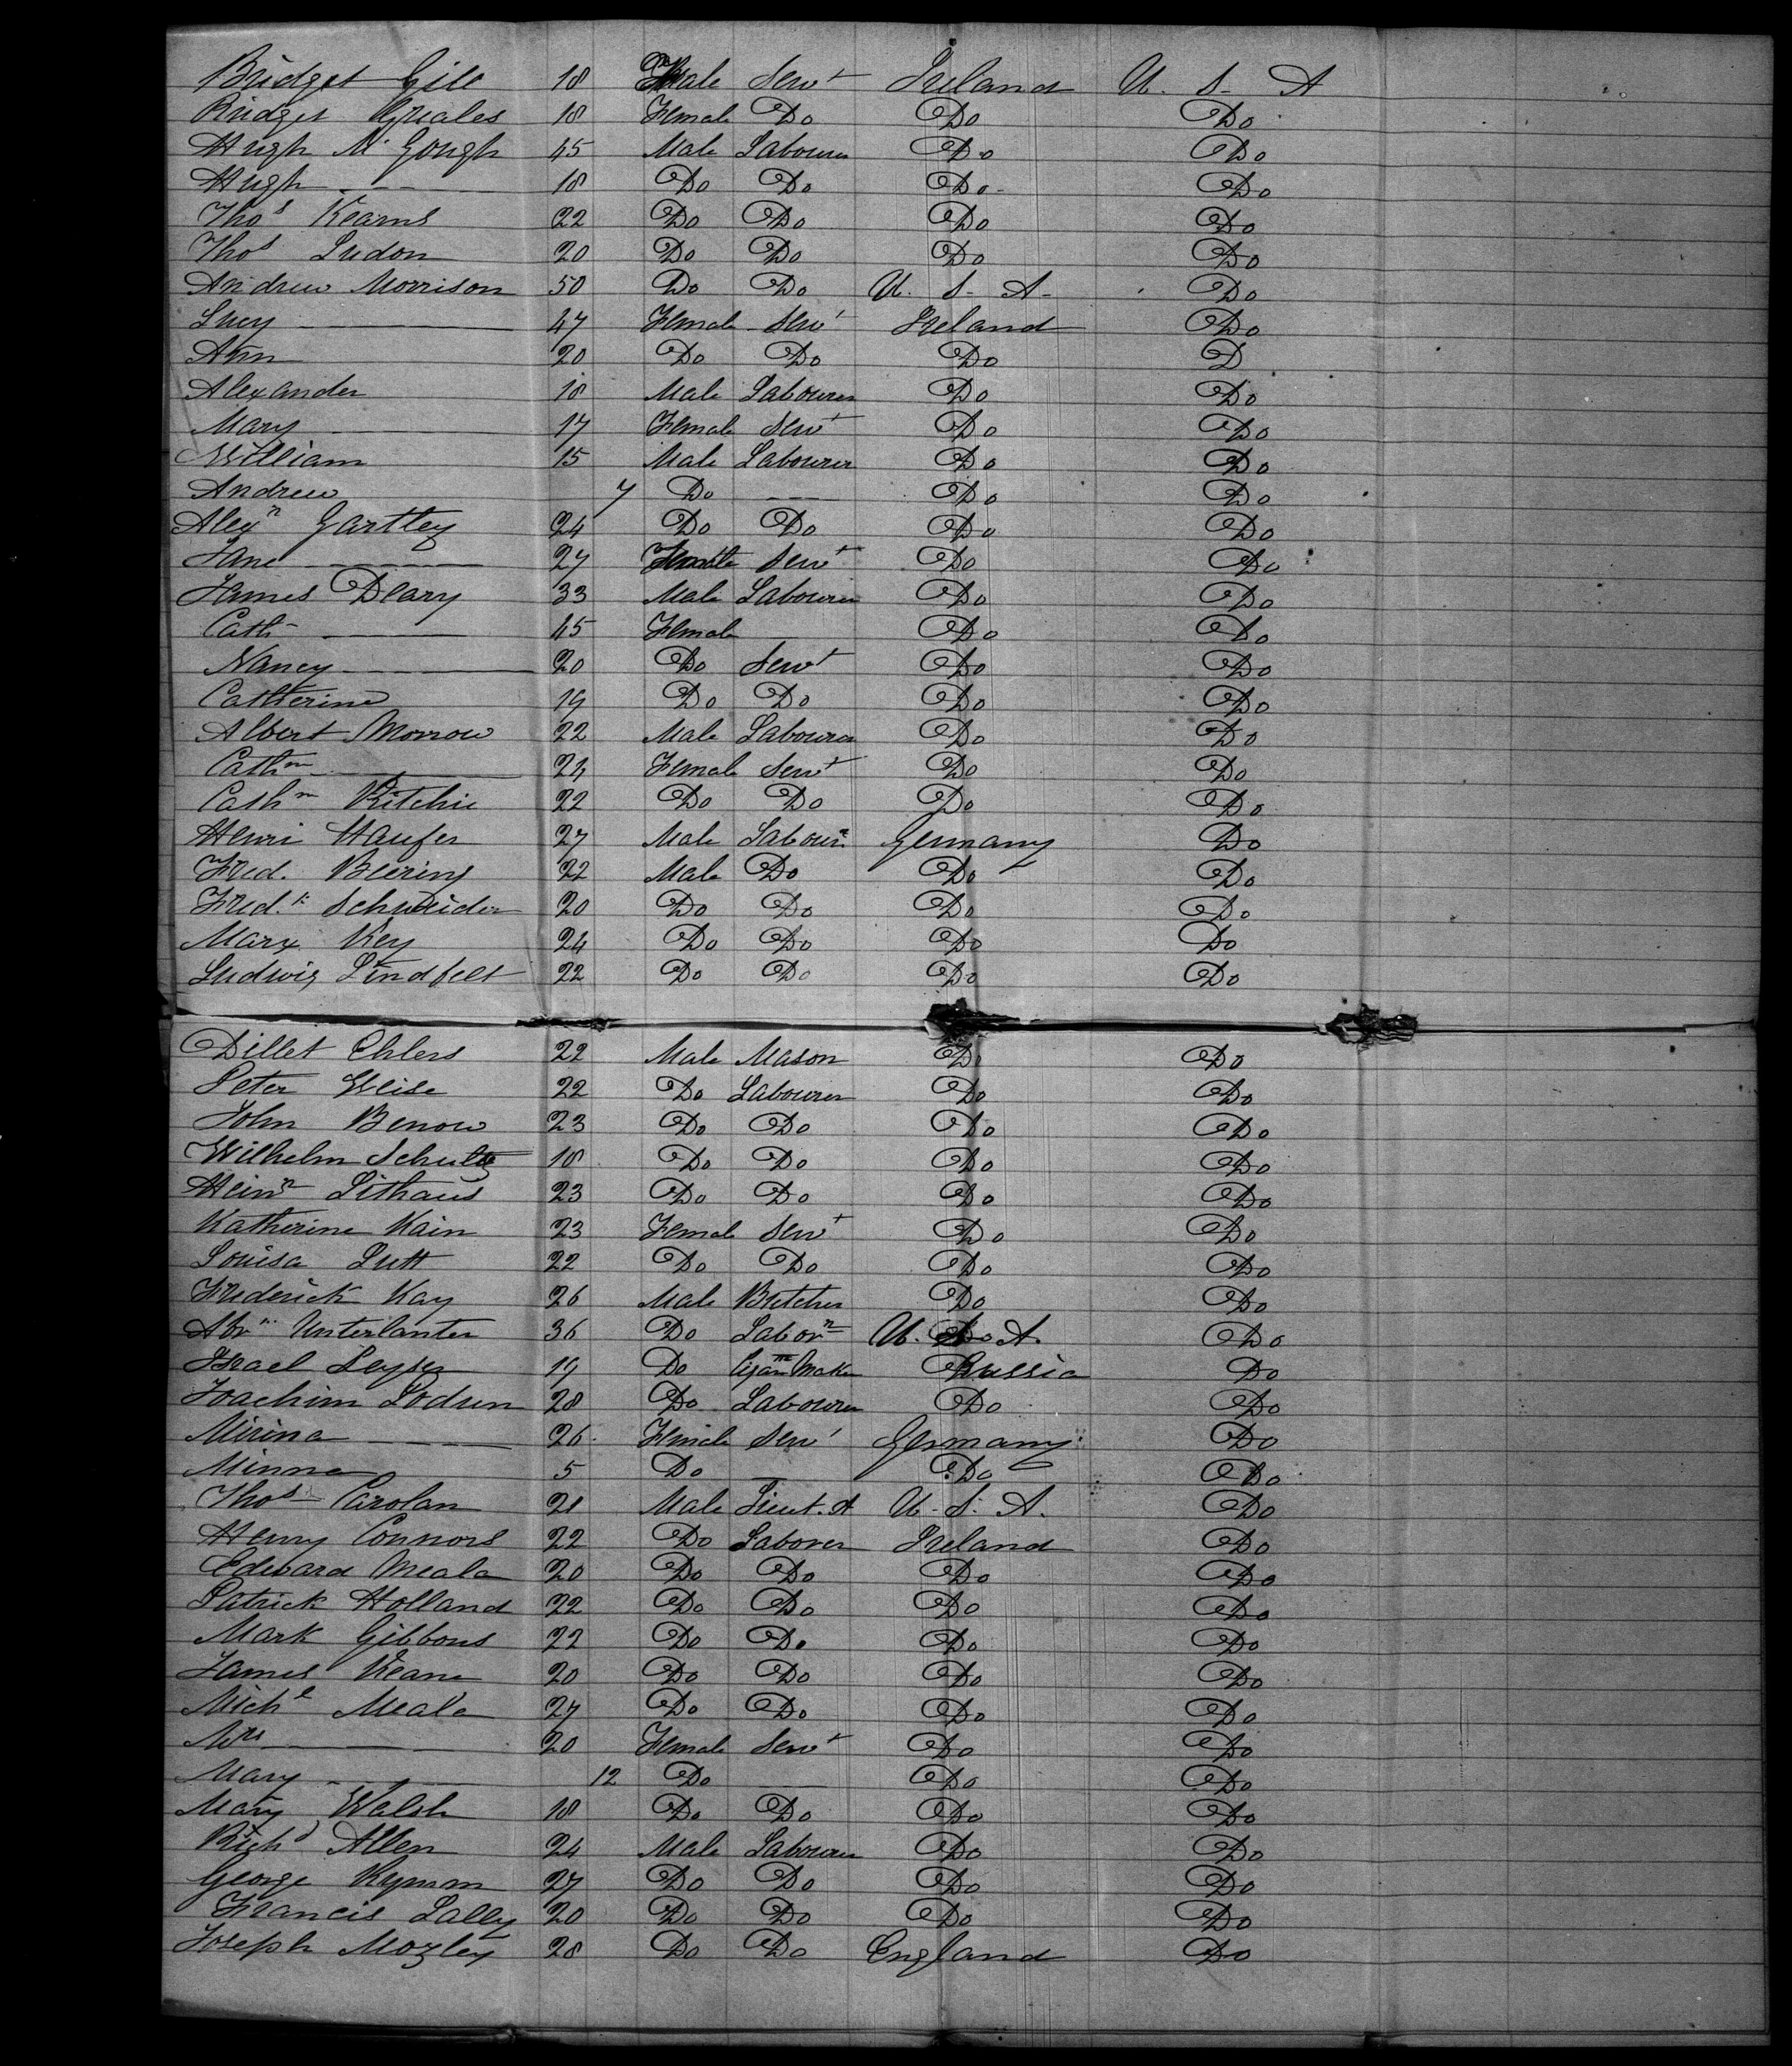 Bridget Gill 18 Female Servt Ireland U. S. A
Bridget Greales 18 Female Do Do Do
Hugh McGough 45 Male Labourer Do Do
Hugh — 18 Do Do Do Do
Thos Kearns 22 Do Do Do Do
Thos Ludon 20 Do Do Do Do
Andrew Morrison 50 Do Do U. S. A. Do
Lucy — 47 Female Servt Ireland Do
Ann 20 Do Do Do D
Alexander 18 Male Labourer Do Do
Mary — 17 Female Servt Do Do
William 15 Male Labourer Do Do
Andrew 7 Do — Do Do
Alexr Gartley 24 Do Do Do Do
Jane — 27 Female Servt Do Do
James Deary 33 Male Labourer Do Do
Cath — 45 Female Do Do
Nancy — 20 Do Servt Do Do
Catherine 19 Do Do Do Do
Albert Morrow 22 Male Labourer Do Do
Cathn — 24 Female Servt Do Do
Cathn Ritchie 22 Do Do Do Do
Henri Haufer 27 Male Labourr Germany Do
Fred. Beering 22 Male Do Do Do
Fred.k Schneider 20 Do Do Do Do
Marx Key 24 Do Do Do Do
Ludwig Lindfelt 22 Do Do Do Do
Dillet Ehlers 22 Male Mason Do Do
Peter Weise 22 Do Labourer Do Do
John Benow 23 Do Do Do Do
Wilhelm Schultz 18 Do Do Do Do
Heinr Lithaus 23 Do Do Do Do
Katherine Kain 23 Female Servt Do Do
Louisa Lutt 22 Do Do Do Do
Frederick Kay 26 Male Butcher Do Do
Abrm Unterlanter 36 Do Laborr U. S. A. Do
Israel Leyser 19 Do Cigar Maker Russia Do
Joachim Lodren 28 Do Labourer Do Do
Mirina — 26 Female Servt Germany Do
Minna 5 Do — Do Do
Thos Carolan 21 Male Lieut. A U. S. A. Do
Henry Connors 22 Do Laborer Ireland Do
Edward Meala 20 Do Do Do Do
Patrick Holland 22 Do Do Do Do
Mark Gibbons 22 Do Do Do Do
James Keane 20 Do Do Do Do
Michl Meala 27 Do Do Do Do
Mrs — 20 Female Servt Do Do
Mary — 12 Do — Do Do
Mary Walsh 18 Do Do Do Do
Richd Allen 24 Male Labourer Do Do
George Rymm 27 Do Do Do Do
Francis Lally 20 Do Do Do Do
Joseph Mozley 28 Do Do England Do